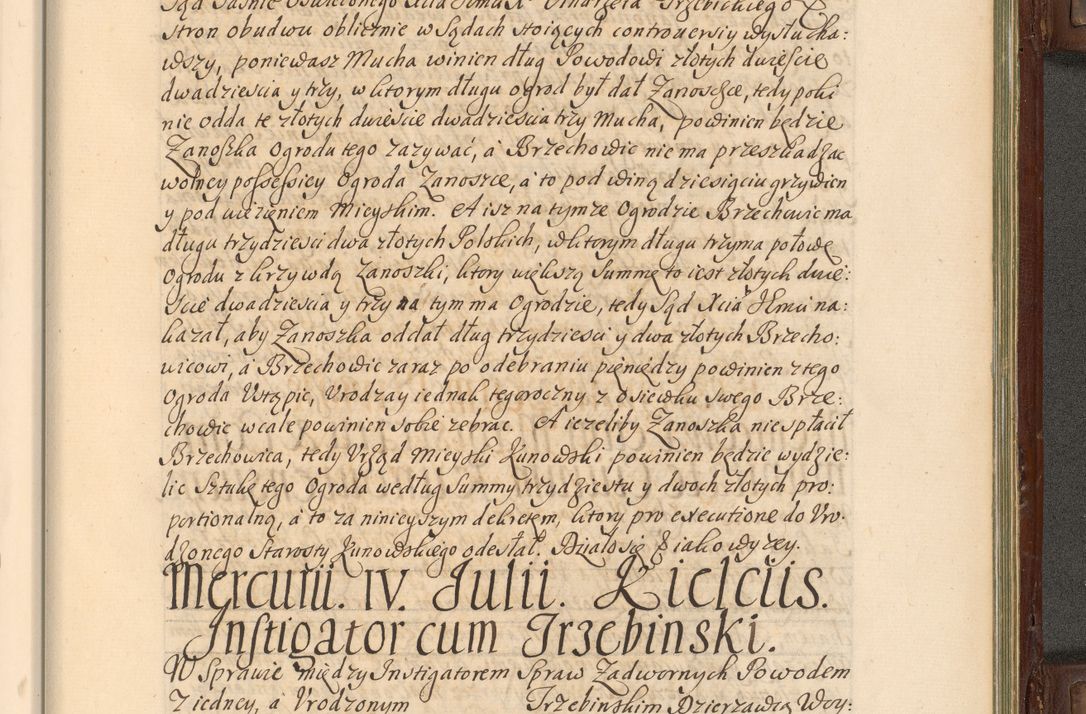 Sąd Jaśnie Oświeconego Xcia Jmci X Andrzeia Trzebickiego &
stron obudwu oblicznie w Sądach stoiących controuersiy wysłucha:
wszy, poniewasz Mucha winien dług Powodowi złotych dwieście
dwadzieścia y trzy, w ktorym długu ogrod był dał Zanoszce, tedy poki
nie odda te złotych dwieście dwadzieścia trzy Mucha, powinien będzie
Zanoszka Ogrodu tego zazywać, a Brzechowic nie ma przeszkadzac
wolney possessiey Ogroda Zanoszce, a to pod winą dziesiąciu grzywien
y pod więzieniem Mieyskim. A isz na tymze Ogrodzie Brzechowic ma
długu trzydzieści dwa złotych Polskich, w ktorym długu trzyma połowę
Ogrodu z krzywdą Zanoszki, ktory większą Summę to iest złotych dwie:
ście dwadzieścia y trzy na tym ma Ogrodzie, tedy Sąd Xcia Jmci na:
kazał, aby Zanoszka oddał dług trzydzieści y dwa złotych Brzecho:
wicowi, a Brzechowic zaraz po odebraniu pieniędzy powinien z tego
Ogroda Ustąpic, Urodzay iednak tegoroczny z Osiewku swego Brze:
chowic wcale powinien sobie zebrac. A iezeliby Zanoszka nie spłacił
Brzechowica, tedy Urząd Mieyski Kunowski powinien będzie wydzie:
lic Sztukę tego Ogroda według Summy trzydziestu y dwoch złotych pro:
portionalną, a to za ninieyszym dekretem, ktory pro executione do Uro:
dzonego Starosty Kunowskiego odesłał. Działo się & iako wyzey.
Mercurii. IV. Julii. Kielciis.
Instigator cum Trzebinski.
W Sprawie między Instigatorem Spraw Zadwornych Powodem
z iedney, a Urodzonym Trzebinskim Dzierzawcą Woy: